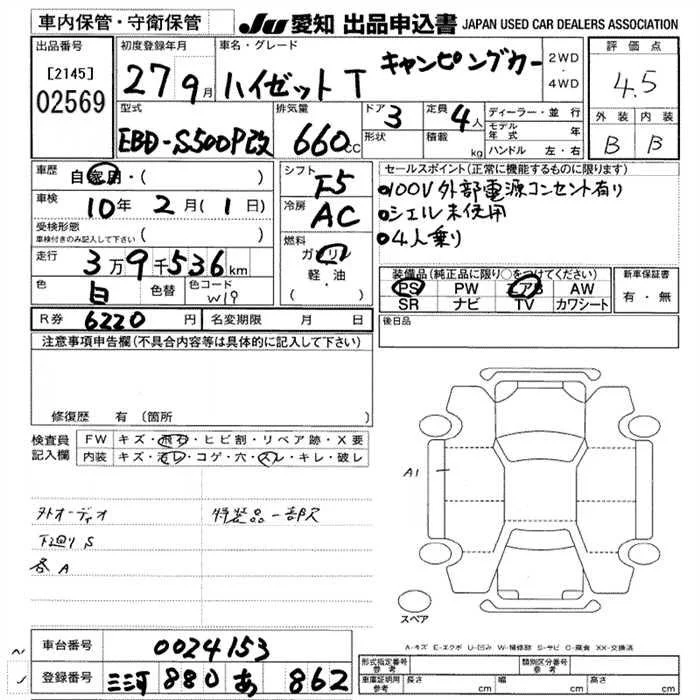 車内保管・守衛保管
JU 愛知 出品申込書 JAPAN USED CAR DEALERS ASSOCIATION
出品番号
[2145]
02569
初度登録年月
27 9月
車名・グレード
ハイゼット T キャンピングカー
2WD
・
4WD
評価点
4.5
外装 内装
B B
型式
EBD-S500P改
排気量
660cc
ドア
3
形状
定員
4人
積載
kg
ディーラー・並行
モデル年式 年
ハンドル 左・右
車歴
自家用・( )
車検
10年 2月(1日)
受検形態
車検付きのみ記入して下さい ( )
走行
3万9千536km
色
白
色替
色コード
W19
シフト
F5
冷房
AC
燃料
ガソリン
軽・油
( )
セールスポイント(正常に機能するものに限ります)
○100V外部電源コンセント有り
○シェル未使用
○4人乗り
装備品(純正品に限り○をつけてください)
PS PW エアB AW
SR ナビ TV カワシート
新車保証書
有・無
R券 6220円
名変期限 月 日
後日品
注意事項申告欄(不具合内容等は具体的に記入して下さい)
修復歴 有 (箇所
検査員記入欄
FW キズ・飛石・ヒビ割・リペア跡・X要
内装 キズ・ヨゴレ・コゲ・穴・スレ・キレ・破レ
外オーディオ
特装品一部欠
下廻りS
各A
A1
スペア
A-キズ E-エクボ U-凹み W-補修跡 S-サビ C-腐食 XX-交換済
車台番号 0024153
登録番号 三河 880 あ 862
形式指定番号
参考
類別区分番号
参考
車庫証明用
参考
長さ cm
幅 cm
高さ cm